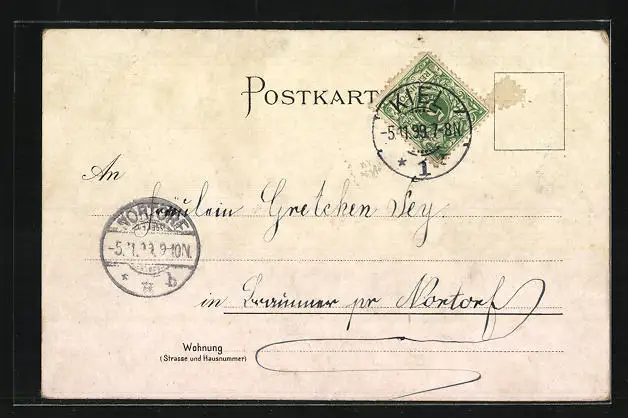 POSTKARTE
KIEL
-5.11.99.7-8N.
* 1
An
Fräulein Gretchen Sey.
NORTORF
-5.11.99.9-10N.
in Brammer pr Nortorf
Wohnung
(Strasse und Hausnummer)